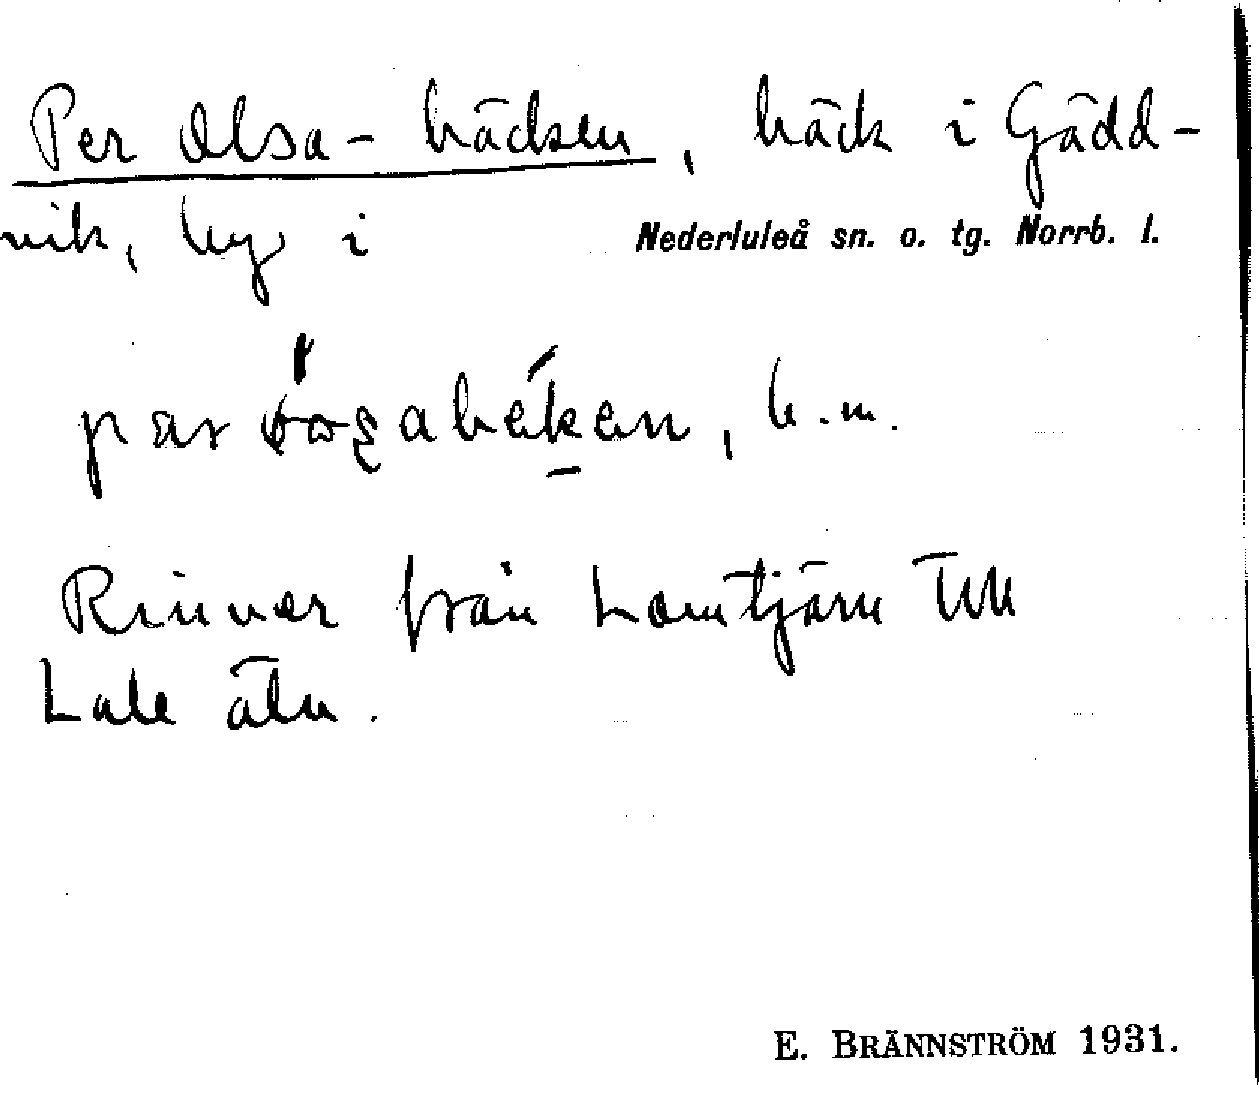 Per Olsa-bäcken, bäck i Gädd-
vik, by i Nederluleå sn. o. tg. Norrb. l.
b.m.
Rinner från Lomtjärn till
Lule älv.
E. BRÄNNSTRÖM 1931.